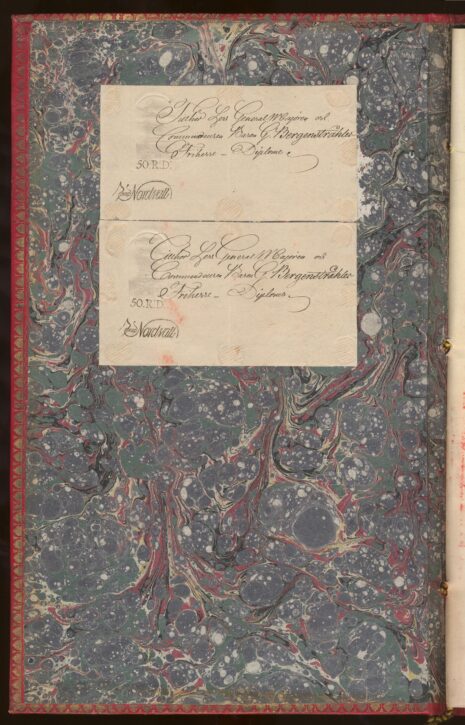 Tilhör Herr General Majoren och
Commendeuren Baron C. Bergenstråhles
Friherre - Diplome.
50.R.D.
Nordvall
Tilhör Herr General Majoren och
Commendeuren Baron C. Bergenstråhles
Friherre - Diplome.
50.R.D.
Nordvall